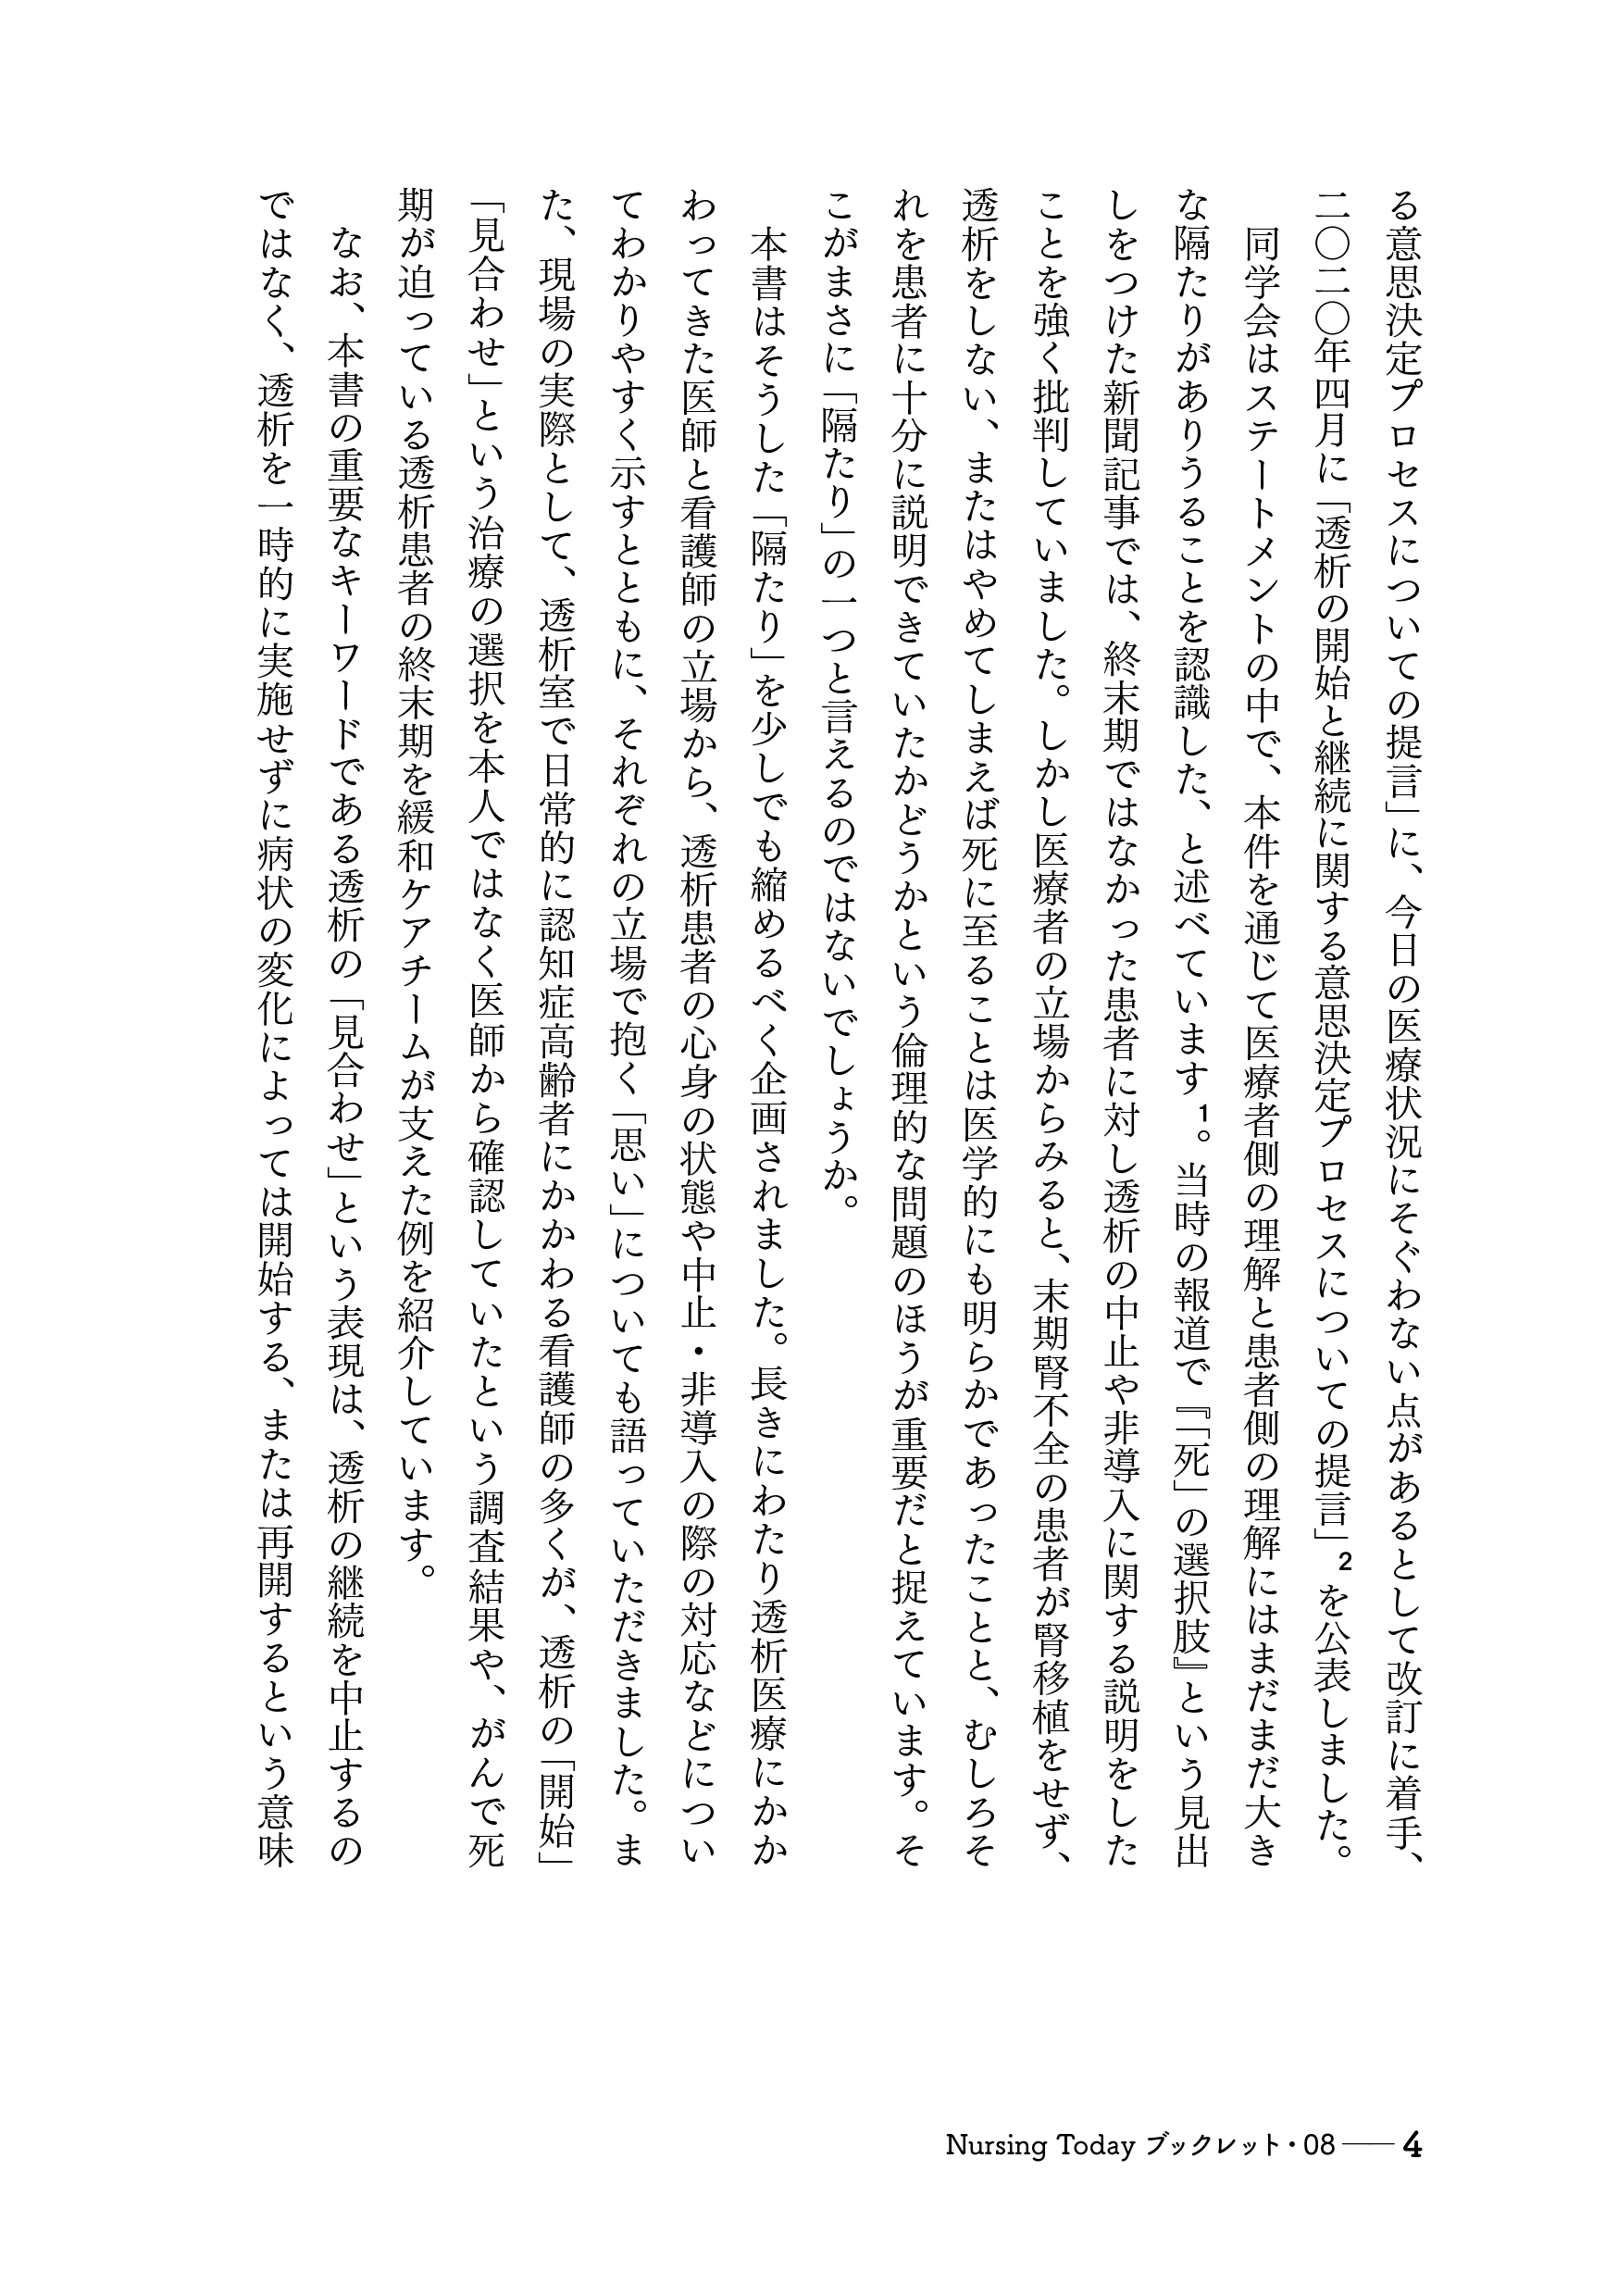 る意思決定プロセスについての提言」に、今日の医療状況にそぐわない点があるとして改訂に着手、
二〇二〇年四月に「透析の開始と継続に関する意思決定プロセスについての提言」2を公表しました。
　同学会はステートメントの中で、本件を通じて医療者側の理解と患者側の理解にはまだまだ大き
な隔たりがありうることを認識した、と述べています1。当時の報道で『「死」の選択肢』という見出
しをつけた新聞記事では、終末期ではなかった患者に対し透析の中止や非導入に関する説明をした
ことを強く批判していました。しかし医療者の立場からみると、末期腎不全の患者が腎移植をせず、
透析をしない、またはやめてしまえば死に至ることは医学的にも明らかであったことと、むしろそ
れを患者に十分に説明できていたかどうかという倫理的な問題のほうが重要だと捉えています。そ
こがまさに「隔たり」の一つと言えるのではないでしょうか。
　本書はそうした「隔たり」を少しでも縮めるべく企画されました。長きにわたり透析医療にかか
わってきた医師と看護師の立場から、透析患者の心身の状態や中止・非導入の際の対応などについ
てわかりやすく示すとともに、それぞれの立場で抱く「思い」についても語っていただきました。ま
た、現場の実際として、透析室で日常的に認知症高齢者にかかわる看護師の多くが、透析の「開始」
「見合わせ」という治療の選択を本人ではなく医師から確認していたという調査結果や、がんで死
期が迫っている透析患者の終末期を緩和ケアチームが支えた例を紹介しています。
　なお、本書の重要なキーワードである透析の「見合わせ」という表現は、透析の継続を中止するの
ではなく、透析を一時的に実施せずに病状の変化によっては開始する、または再開するという意味
Nursing Today ブックレット・08 —— 4